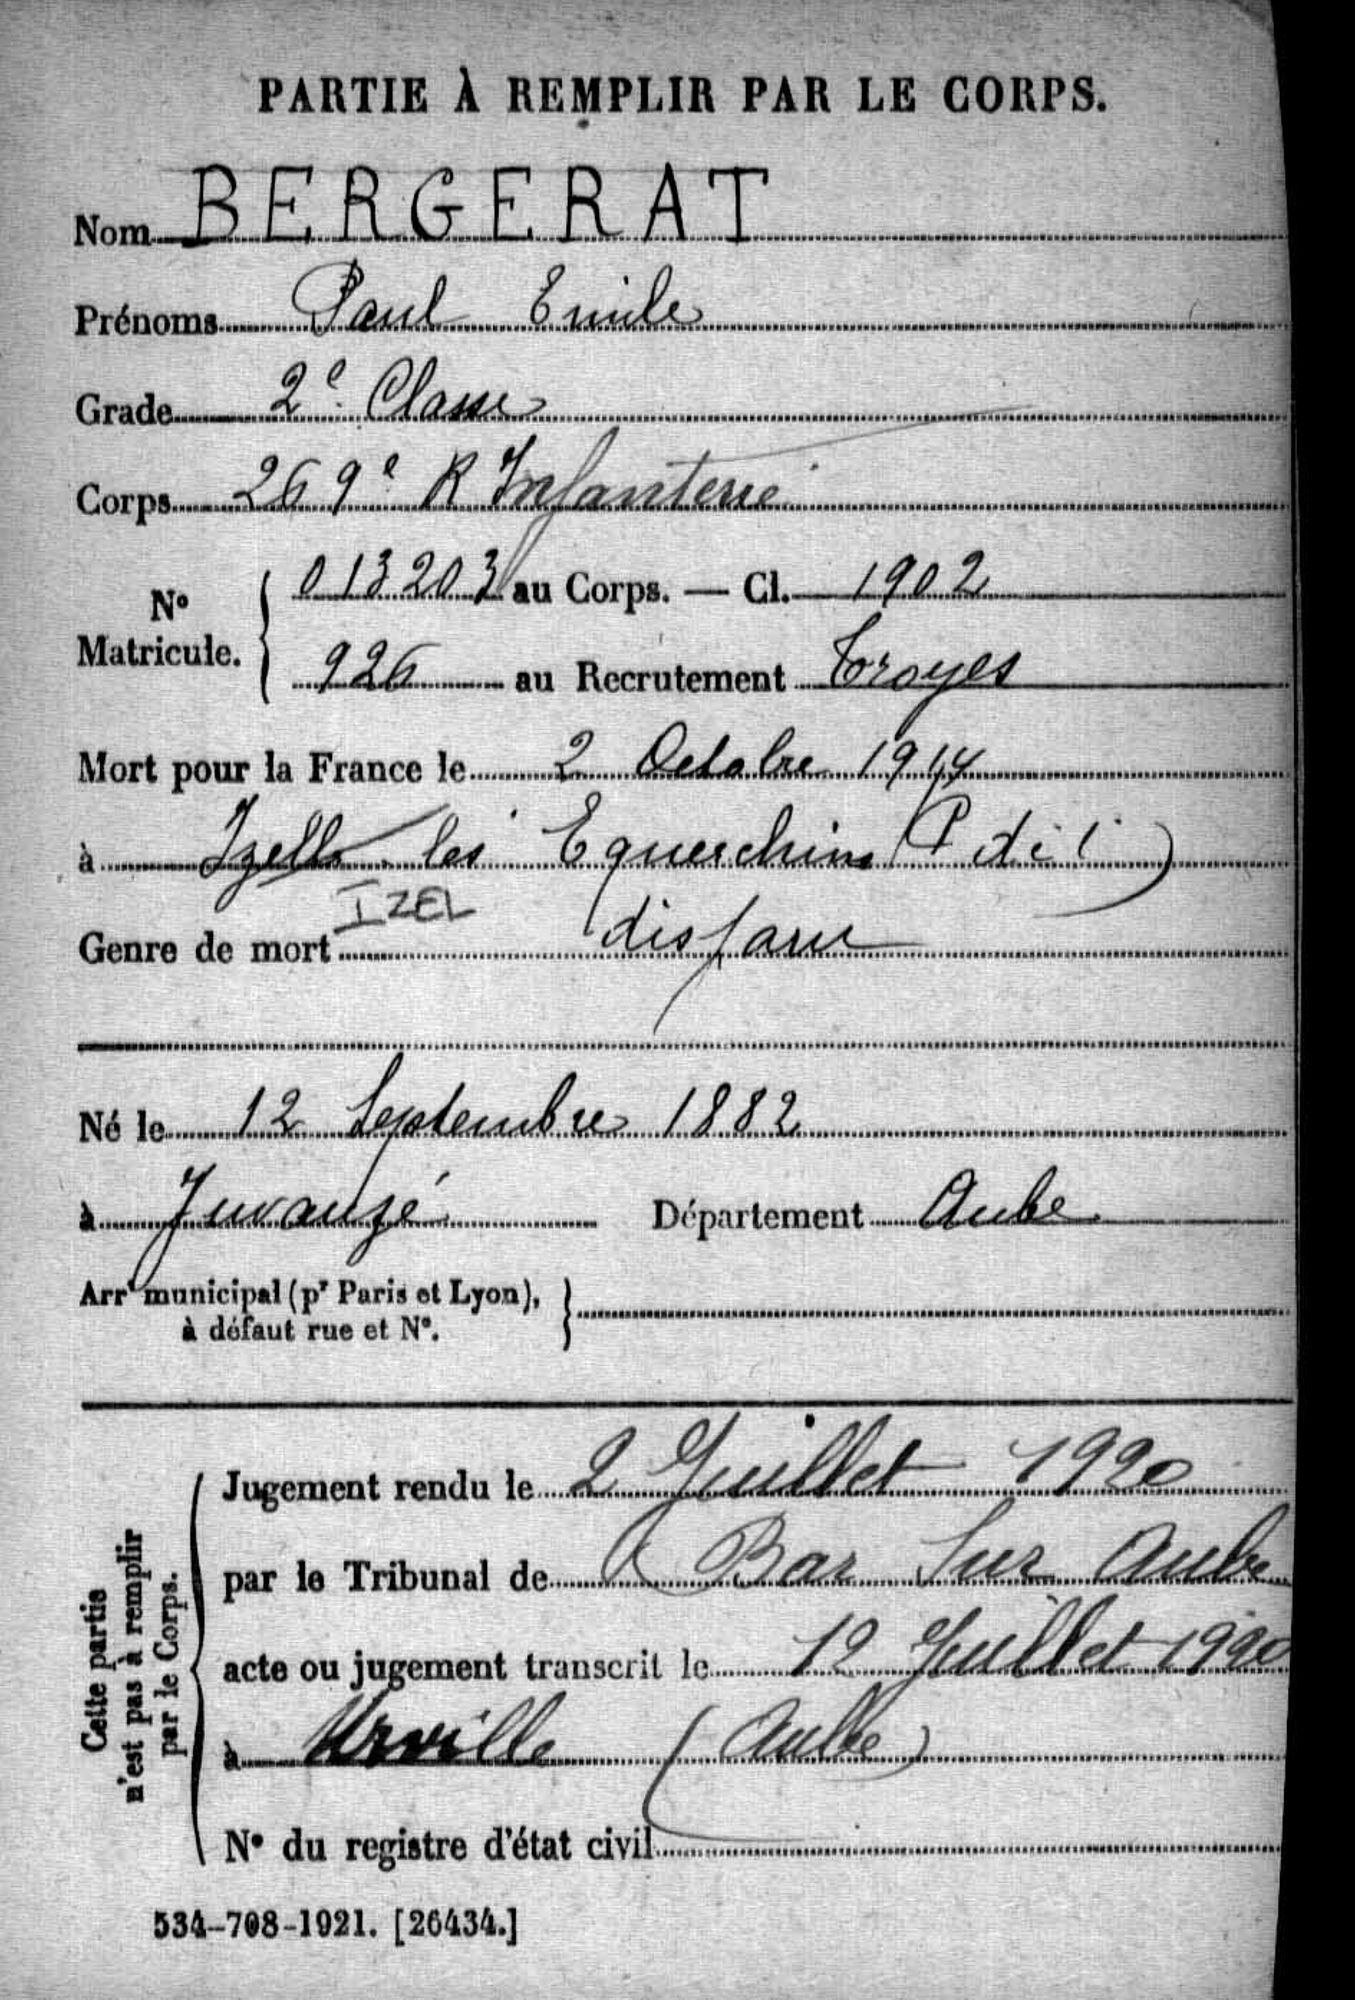 PARTIE À REMPLIR PAR LE CORPS.
Nom BERGERAT
Prénoms Paul Emile
Grade 2e Classe
Corps 269e R Infanterie
No Matricule. { 013203 au Corps. — Cl. 1902
926 au Recrutement Troyes
Mort pour la France le 2 Octobre 1914
à Izelle les Equerchin (P d. C)
IZEL
Genre de mort disparu
Né le 12 Septembre 1882
à Juvanzé Département Aube
Arrt municipal (pr Paris et Lyon), }
à défaut rue et No.
Cette partie
n'est pas à remplir
par le Corps.
Jugement rendu le 2 Juillet 1920
par le Tribunal de Bar Sur Aube
acte ou jugement transcrit le 12 Juillet 1920
à Urville (Aube)
No du registre d'état civil
534-708-1921. [26434.]